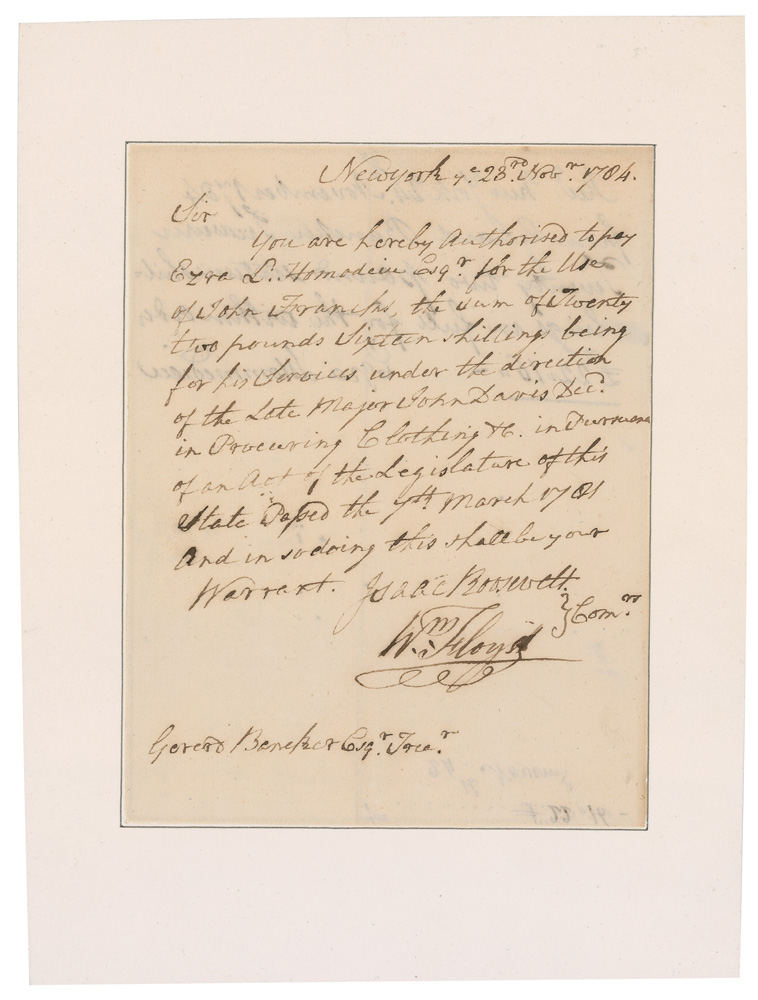 Newyork ye. 23rd. Novr. 1784.
Sir
You are hereby Authorised to pay
Ezra L. Homadeiu Esqr. for the Use
of John Franks, the sum of Twenty
two pounds Sixteen shillings being
for his Services under the direction
of the Late Major John Davis Decd.
in Procuring Clothing &c. in Pursuance
of an Act of the Legislature of this
State Passed the 7th March 1781
And in so doing this shall be your
Warrant. Isaac Roosevelt
} Comrs
Wm. Floyd
Gererd Bancker Esqr. Trear.